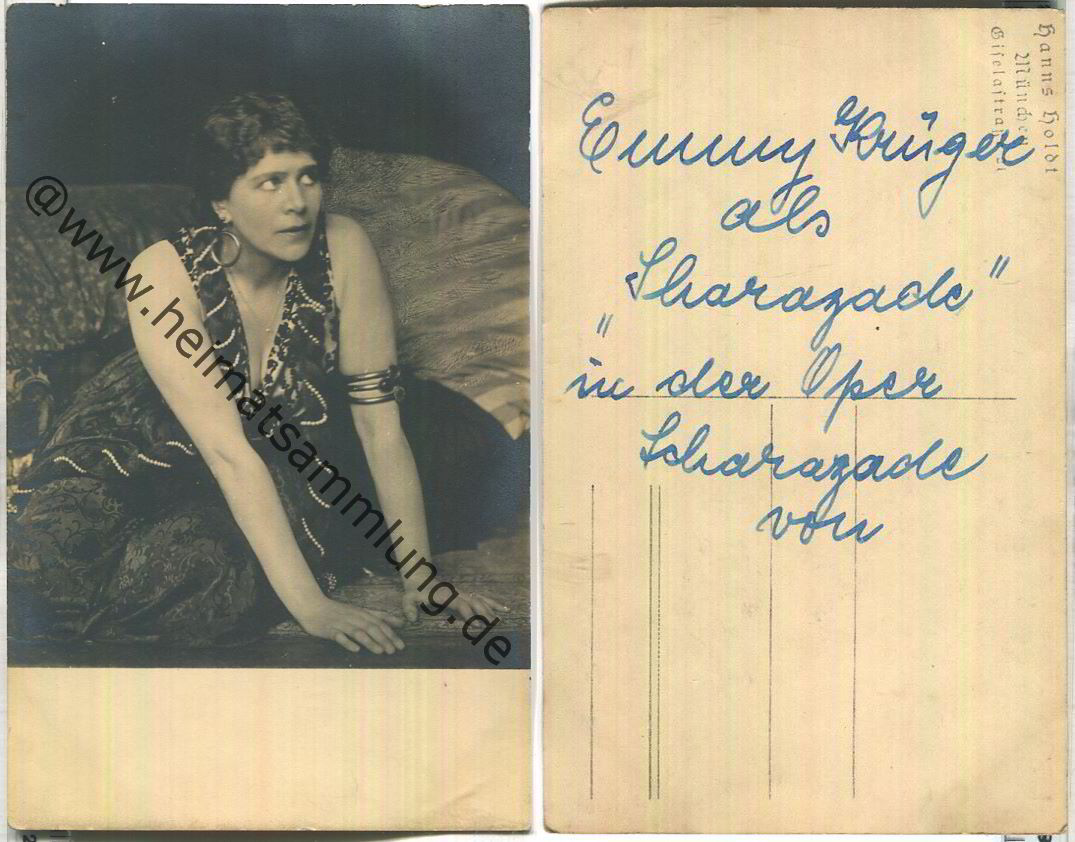 @www.heimatsammlung.de
Hanns Holdt
München
Giselastraße
Emmy Krüger
als
"Sharazade"
in der Oper
Scharazade
von